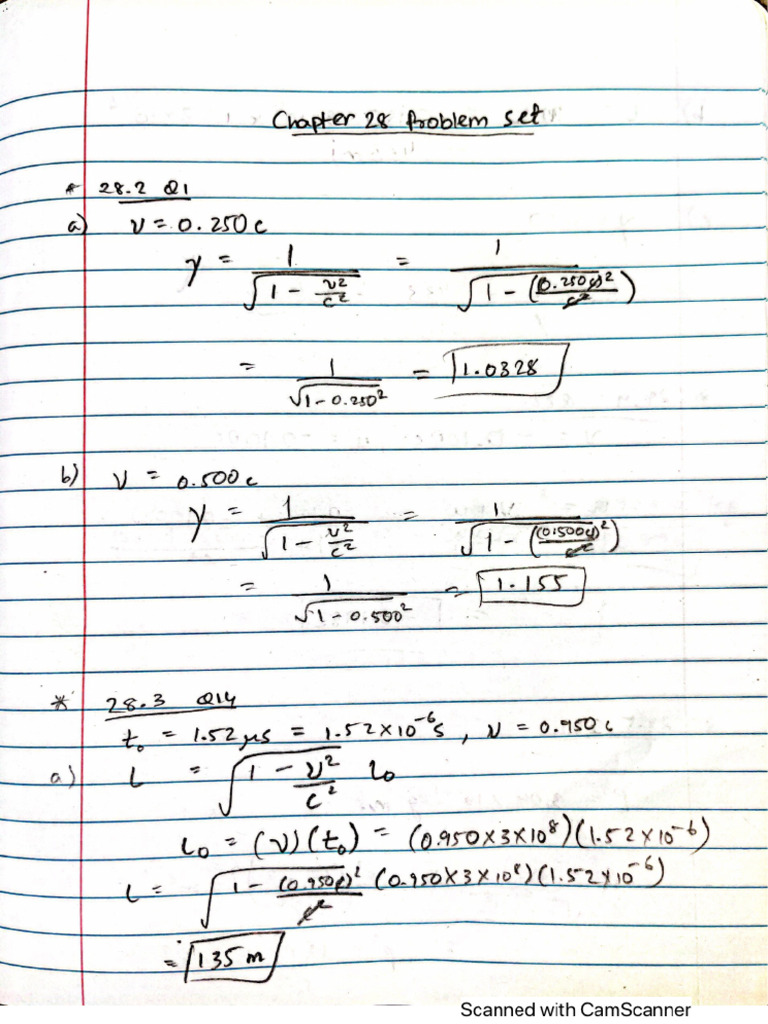 Chapter 28 Problem set
* 28.2 Q1
a) v = 0.250c
γ = 1/√(1 - v²/c²) = 1/√(1 - (0.250c)²/c²)
= 1/√(1-0.250²) = 1.0328
b) v = 0.500c
γ = 1/√(1 - v²/c²) = 1/√(1 - (0.500c)²/c²)
= 1/√(1-0.500²) = 1.155
* 28.3 Q14
t₀ = 1.52 μs = 1.52×10⁻⁶s , v = 0.950c
a) L = √(1 - v²/c²) L₀
L₀ = (v)(t₀) = (0.950×3×10⁸)(1.52×10⁻⁶)
L = √(1 - (0.950c)²/c²) (0.950×3×10⁸)(1.52×10⁻⁶)
= 135 m
Scanned with CamScanner